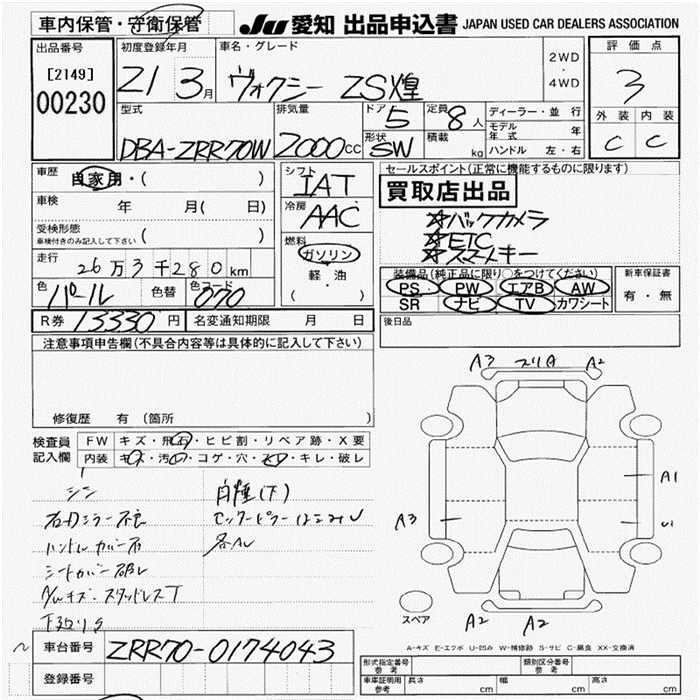 車内保管・守衛保管
JU 愛知 出品申込書 JAPAN USED CAR DEALERS ASSOCIATION
出品番号
[2149]
00230
初度登録年月
21 3月
車名・グレード
ヴォクシー ZS煌
2WD
・
4WD
評価点
3
外装 内装
C C
型式
DBA-ZRR70W
排気量
2000cc
ドア 5
形状 SW
定員 8人
積載 kg
ディーラー・並行
モデル年式 年
ハンドル 左・右
車歴
自家用・( )
車検 年 月( 日)
受検形態
車検付きのみ記入して下さい ( )
走行
26万3千280km
色 パール
色替
色コード 070
シフト
IAT
冷房
AAC
燃料
ガソリン
軽・油
( )
セールスポイント(正常に機能するものに限ります)
買取店出品
☆バックカメラ
☆ETC
☆スマートキー
装備品(純正品に限り○をつけてください)
PS PW エアB AW
SR ナビ TV カワシート
新車保証書
有・無
R券 13330円
名変通知期限 月 日
後日品
注意事項申告欄(不具合内容等は具体的に記入して下さい)
修復歴 有(箇所 )
検査員記入欄
FW キズ・飛石・ヒビ割・リペア跡・X要
内装 キズ・汚れ・コゲ・穴・スレ・キレ・破レ
シン
ハンドルカバー
シートカバー破レ
A/Wキズ・スタッドレスT
下廻りS
A3 スリA A2
A1
A3
U1
スペア
A2 A2
A-キズ E-エクボ U-凹み W-補修跡 S-サビ C-腐食 XX-交換済
車台番号 ZRR70-0174043
登録番号
形式指定番号 参考
類別区分番号 参考
車庫証明用 参考
長さ cm
幅 cm
高さ cm